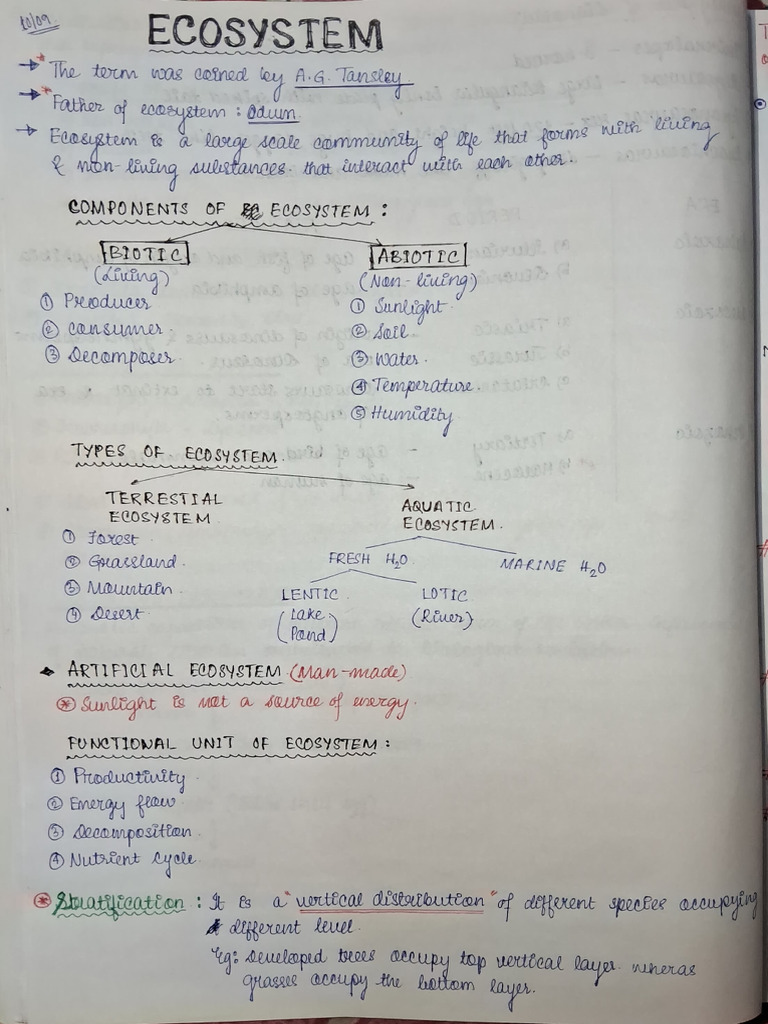 10/09
ECOSYSTEM
→ * The term was coined by A.G. Tansley.
→ * Father of ecosystem : Odum.
→ Ecosystem is a large scale community of life that forms with living
& non-living substances that interact with each other.
COMPONENTS OF ECOSYSTEM :
BIOTIC ABIOTIC
(Living) (Non-living)
① Producer ① Sunlight
② Consumer ② Soil
③ Decomposer ③ Water
④ Temperature
⑤ Humidity
TYPES OF ECOSYSTEM
TERRESTIAL ECOSYSTEM
AQUATIC ECOSYSTEM
① Forest
② Grassland
③ Mountain
④ Desert
FRESH H₂O MARINE H₂O
LENTIC LOTIC
(Lake (River)
Pond)
ARTIFICIAL ECOSYSTEM (Man-made)
* Sunlight is not a source of energy.
FUNCTIONAL UNIT OF ECOSYSTEM :
① Productivity
② Energy flow
③ Decomposition
④ Nutrient Cycle
* Stratification : It is a "vertical distribution" of different species occupying
different level.
Eg: Developed trees occupy top vertical layer wheras
grasses occupy the bottom layer.